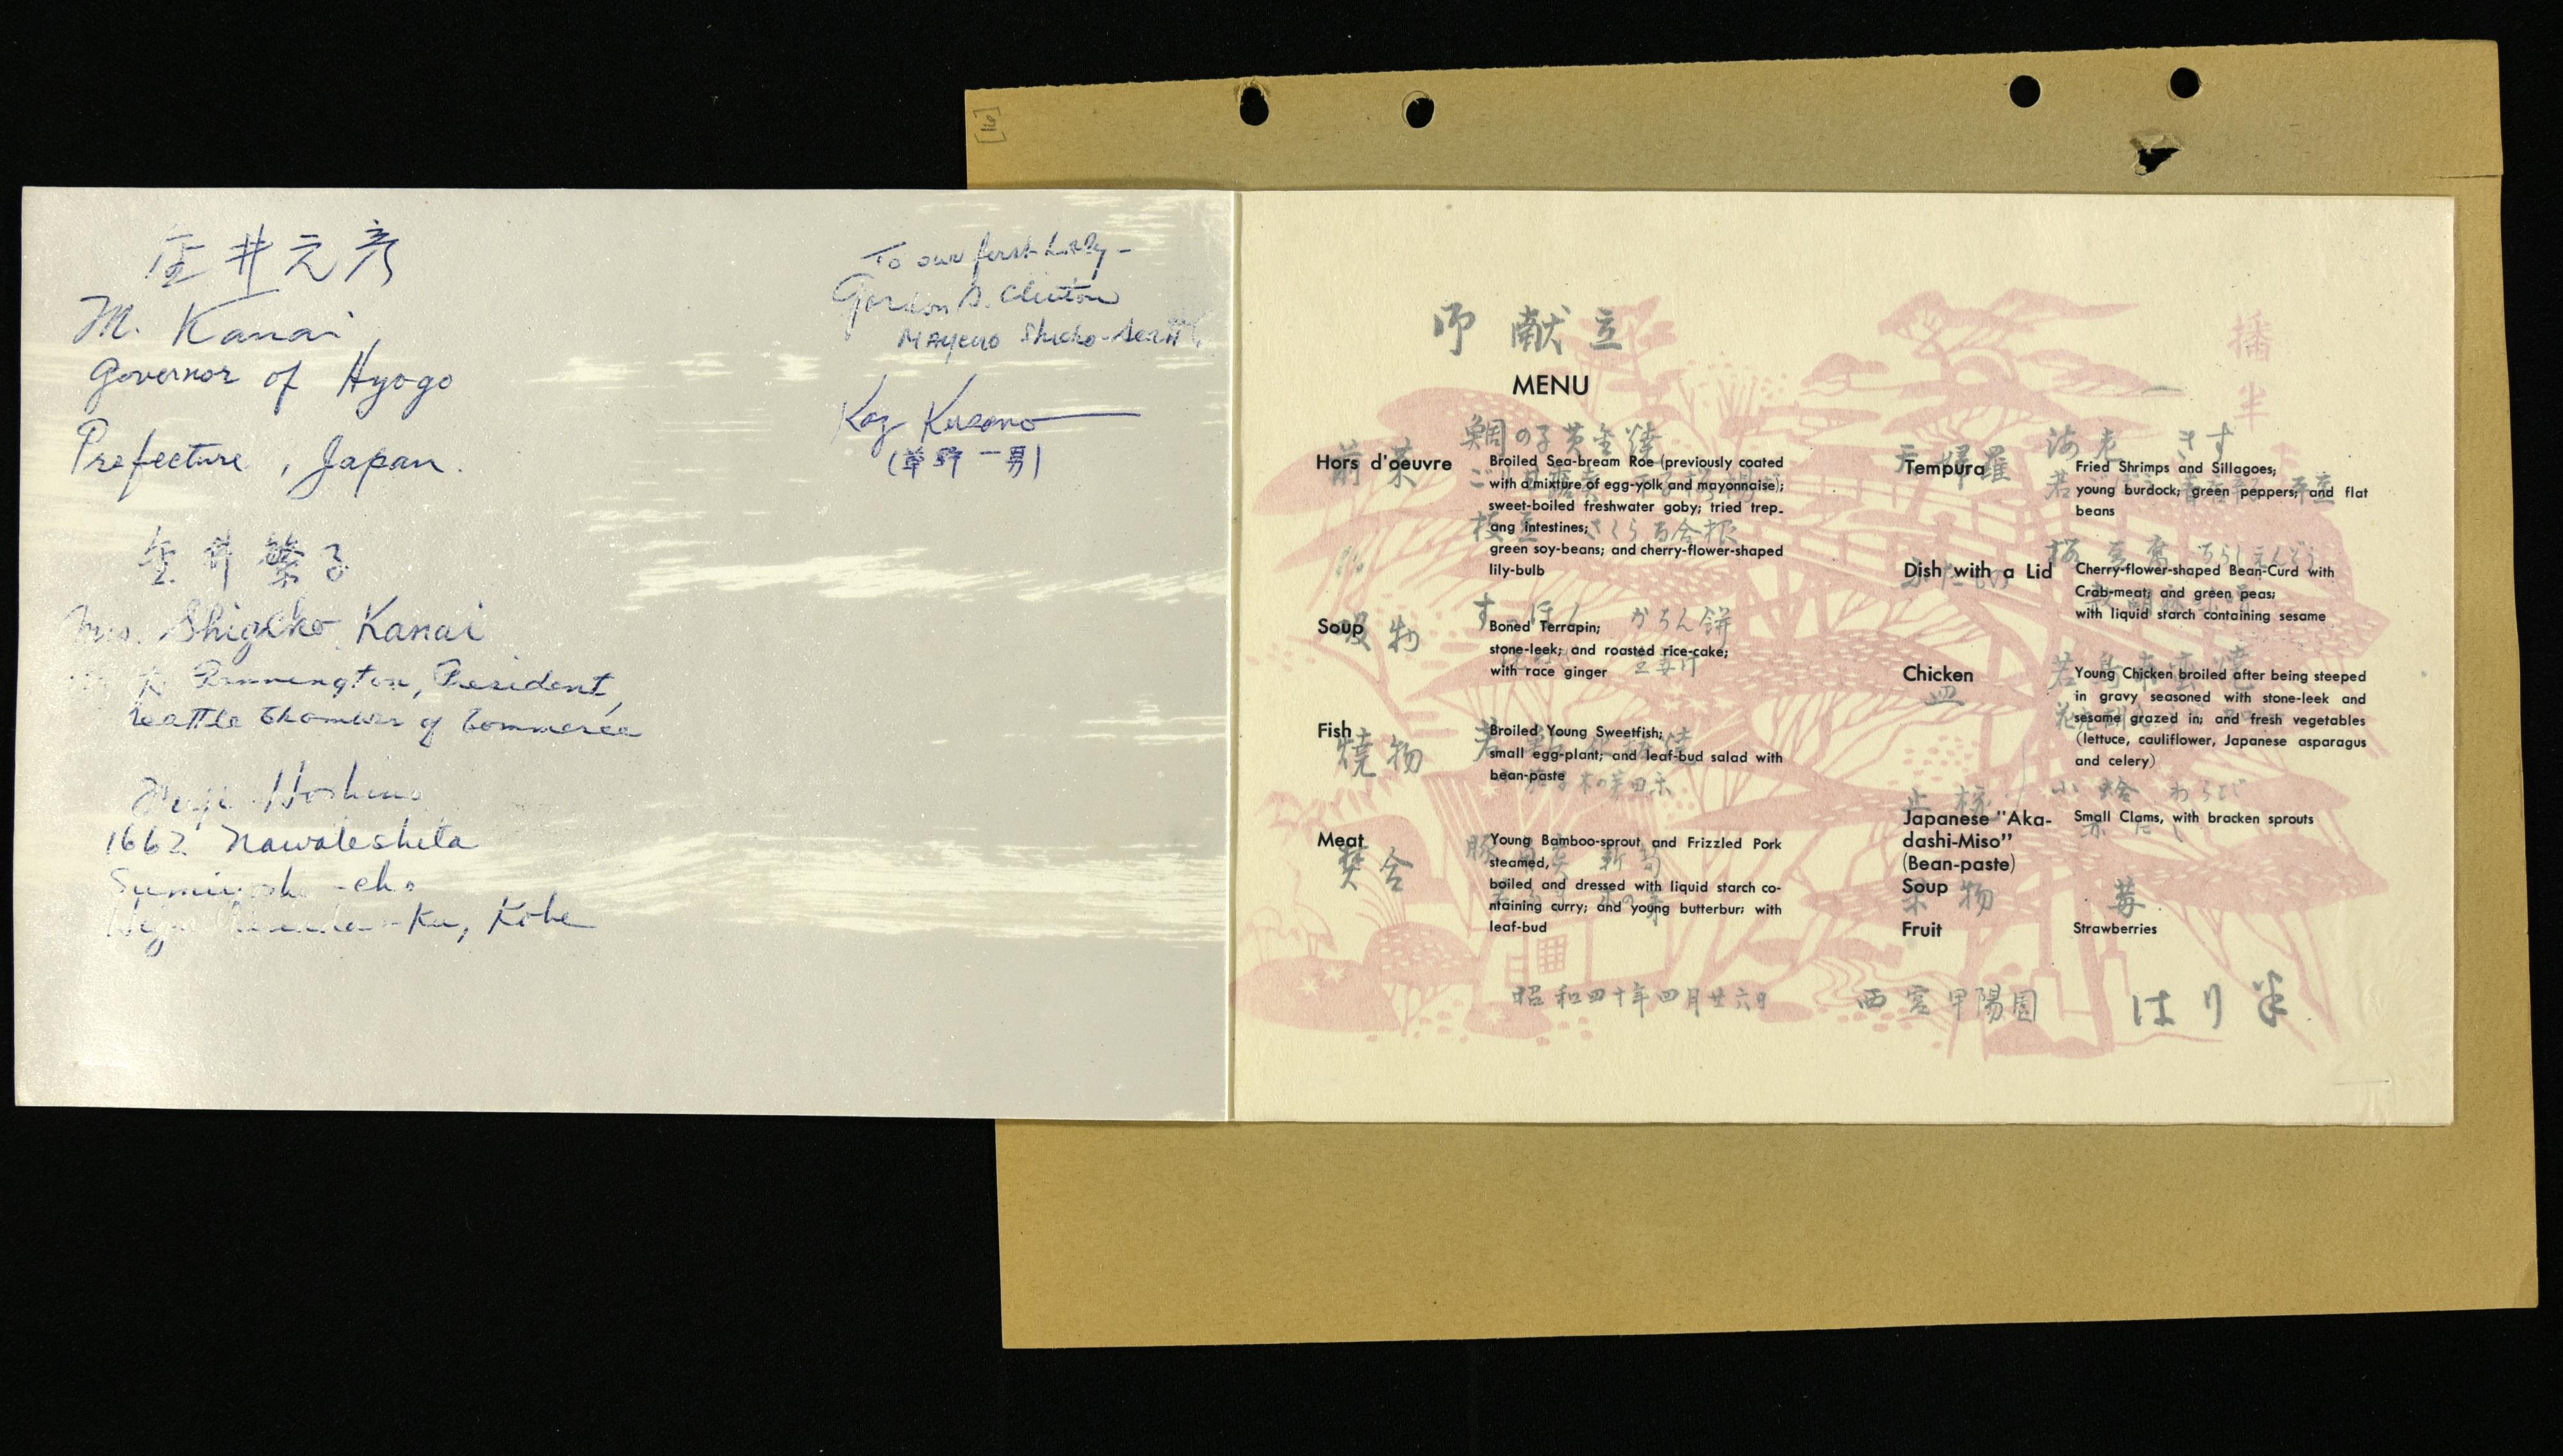 金井元彦
M. Kanai,
Governor of Hyogo
Prefecture, Japan.
金井繁子
Mrs. Shigeko Kanai
Pennington, President,
Seattle Chamber of Commerce
Hoshino
1662 Nawateshita
Sumiyoshi-cho
Ku, Kobe
To our first Lady -
Gordon S. Clinton
Kaz Kusano
(草野一男)
御献立
MENU
播半
鯛の子黄金焼
前菜
Hors d'oeuvre
Broiled Sea-bream Roe (previously coated
with a mixture of egg-yolk and mayonnaise);
sweet-boiled freshwater goby; tried trep-
ang intestines;
枝豆 さくら百合根
green soy-beans; and cherry-flower-shaped
lily-bulb
吸物
Soup
Boned Terrapin;
stone-leek; and roasted rice-cake;
with race ginger
焼物
Fish
Broiled Young Sweetfish;
small egg-plant; and leaf-bud salad with
bean-paste
焚合
Meat
Young Bamboo-sprout and Frizzled Pork
steamed,
boiled and dressed with liquid starch co-
ntaining curry; and young butterbur; with
leaf-bud
天婦羅
海老 きす
Tempura
Fried Shrimps and Sillagoes;
young burdock; green peppers; and flat
beans
Dish with a Lid
Cherry-flower-shaped Bean-Curd with
Crab-meat; and green peas;
with liquid starch containing sesame
皿
Chicken
Young Chicken broiled after being steeped
in gravy seasoned with stone-leek and
sesame grazed in; and fresh vegetables
(lettuce, cauliflower, Japanese asparagus
and celery)
止椀
小蛤 わらび
Japanese "Aka-
dashi-Miso"
(Bean-paste)
Soup
Small Clams, with bracken sprouts
果物
苺
Fruit
Strawberries
昭和四十年四月廿六日
西宮甲陽園
はり半